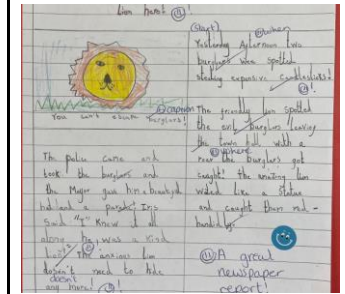 Lion hero!
You can't escape burglars!
caption
The police came and
took the burglars and
the Mayor gave him a
and a Iris
said "I knew it all
along he was a kind
The anxious lion
doesn't need to hide
doesn't
any more!
when
Yesterday Afternoon two
burglars were spotted
stealing expensive candlesticks!
The friendly lion spotted
the evil burglars leaving
the town hall with a
where
roar the burglars got
caught! the amazing lion
waited like a statue
and caught them red-
handed
A great
newspaper
report!